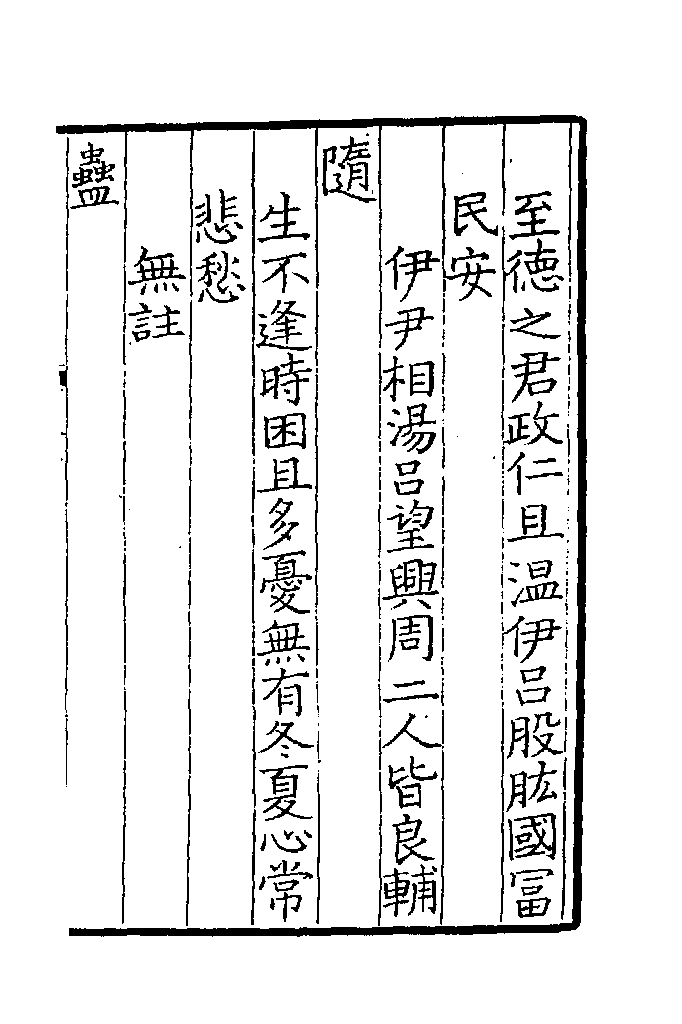 至徳之君政仁且温伊吕股肱國冨
民安
伊尹相湯吕望興周二人皆良輔
隨
生不逢時困且多憂無有冬夏心常
悲愁
無註
蠱